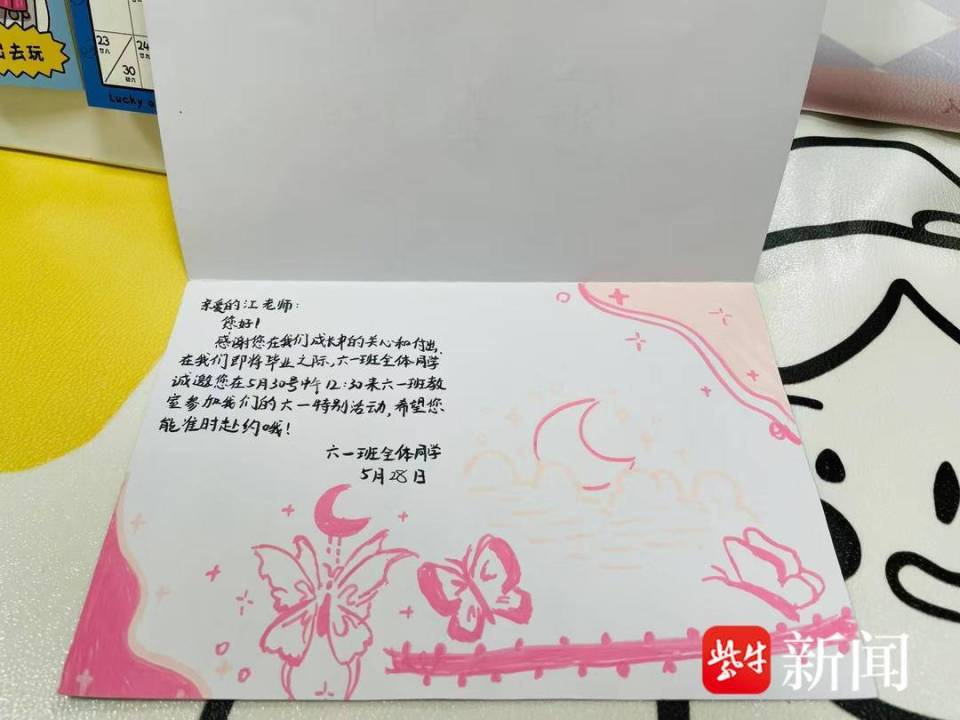 去玩
23
廿八
24
廿九
30
Lucky
亲爱的江老师:
您好!
感谢您在我们成长中的关心和付出,
在我们即将毕业之际,六一班全体同学
诚邀您在5月30号中午12:30来六一班教
室参加我们的六一特别活动,希望您
能准时赴约哦!
六一班全体同学
5月28日
紫牛新闻